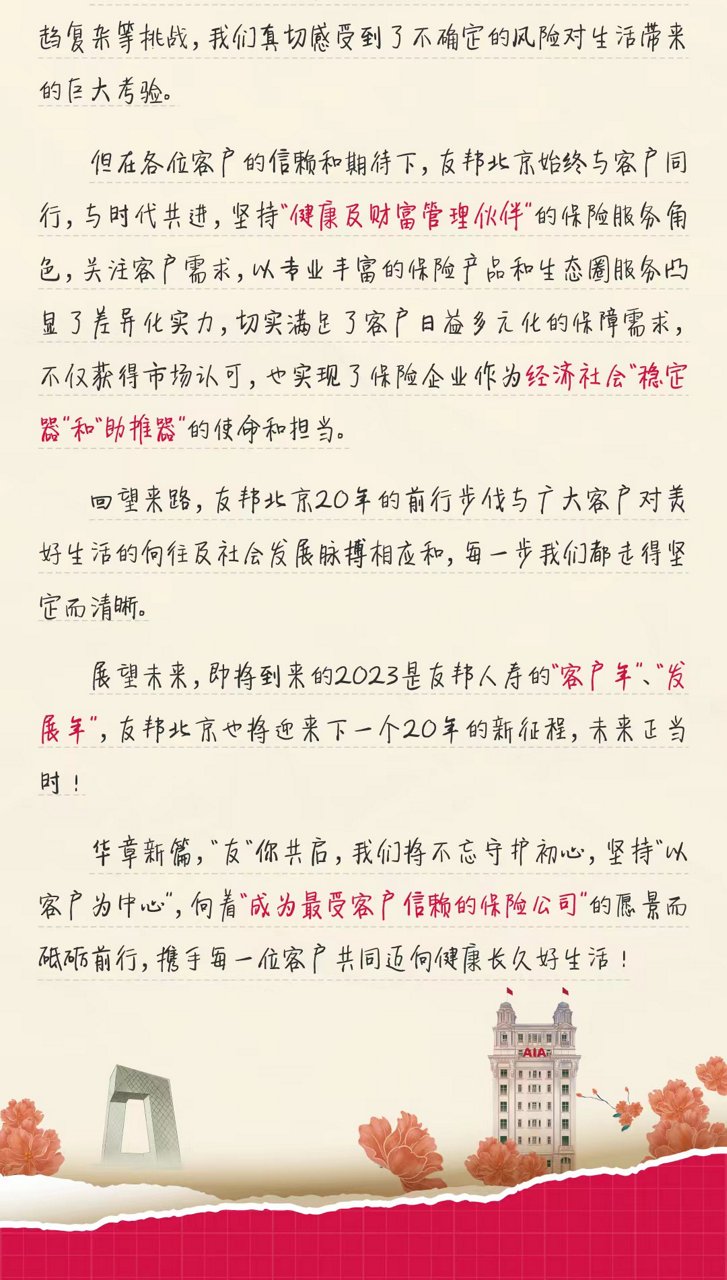 趋复杂等挑战，我们真切感受到了不确定的风险对生活带来
的巨大考验。
但在各位客户的信赖和期待下，友邦北京始终与客户同
行，与时代共进，坚持“健康及财富管理伙伴”的保险服务角
色，关注客户需求，以专业丰富的保险产品和生态圈服务凸
显了差异化实力，切实满足了客户日益多元化的保障需求，
不仅获得市场认可，也实现了保险企业作为经济社会“稳定
器”和“助推器”的使命和担当。
回望来路，友邦北京20年的前行步伐与广大客户对美
好生活的向往及社会发展脉搏相应和，每一步我们都走得坚
定而清晰。
展望未来，即将到来的2023是友邦人寿的“客户年”、“发
展年”，友邦北京也将迎来下一个20年的新征程，未来正当
时！
华章新篇，“友”你共启，我们将不忘守护初心，坚持“以
客户为中心”，向着“成为最受客户信赖的保险公司”的愿景而
砥砺前行，携手每一位客户共同迈向健康长久好生活！
AIA